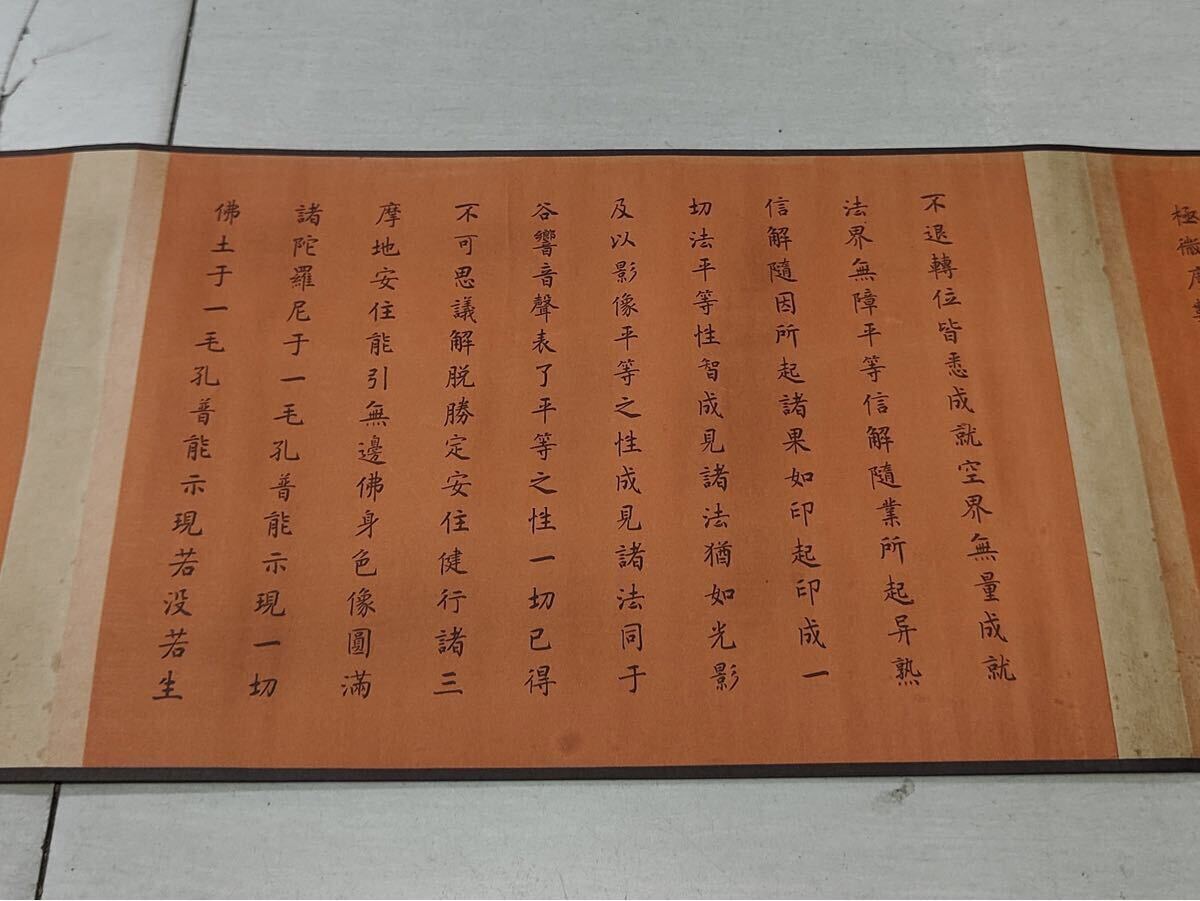 極微
不退轉位皆悉成就空界無量成就
法界無障平等信解隨業所起异熟
信解隨因所起諸果如印起印成一
切法平等性智成見諸法猶如光影
及以影像平等之性成見諸法同于
谷響音聲表了平等之性一切已得
不可思議解脱勝定安住健行諸三
摩地安住能引無邊佛身色像圓滿
諸陀羅尼于一毛孔普能示現一切
佛土于一毛孔普能示現若没若生